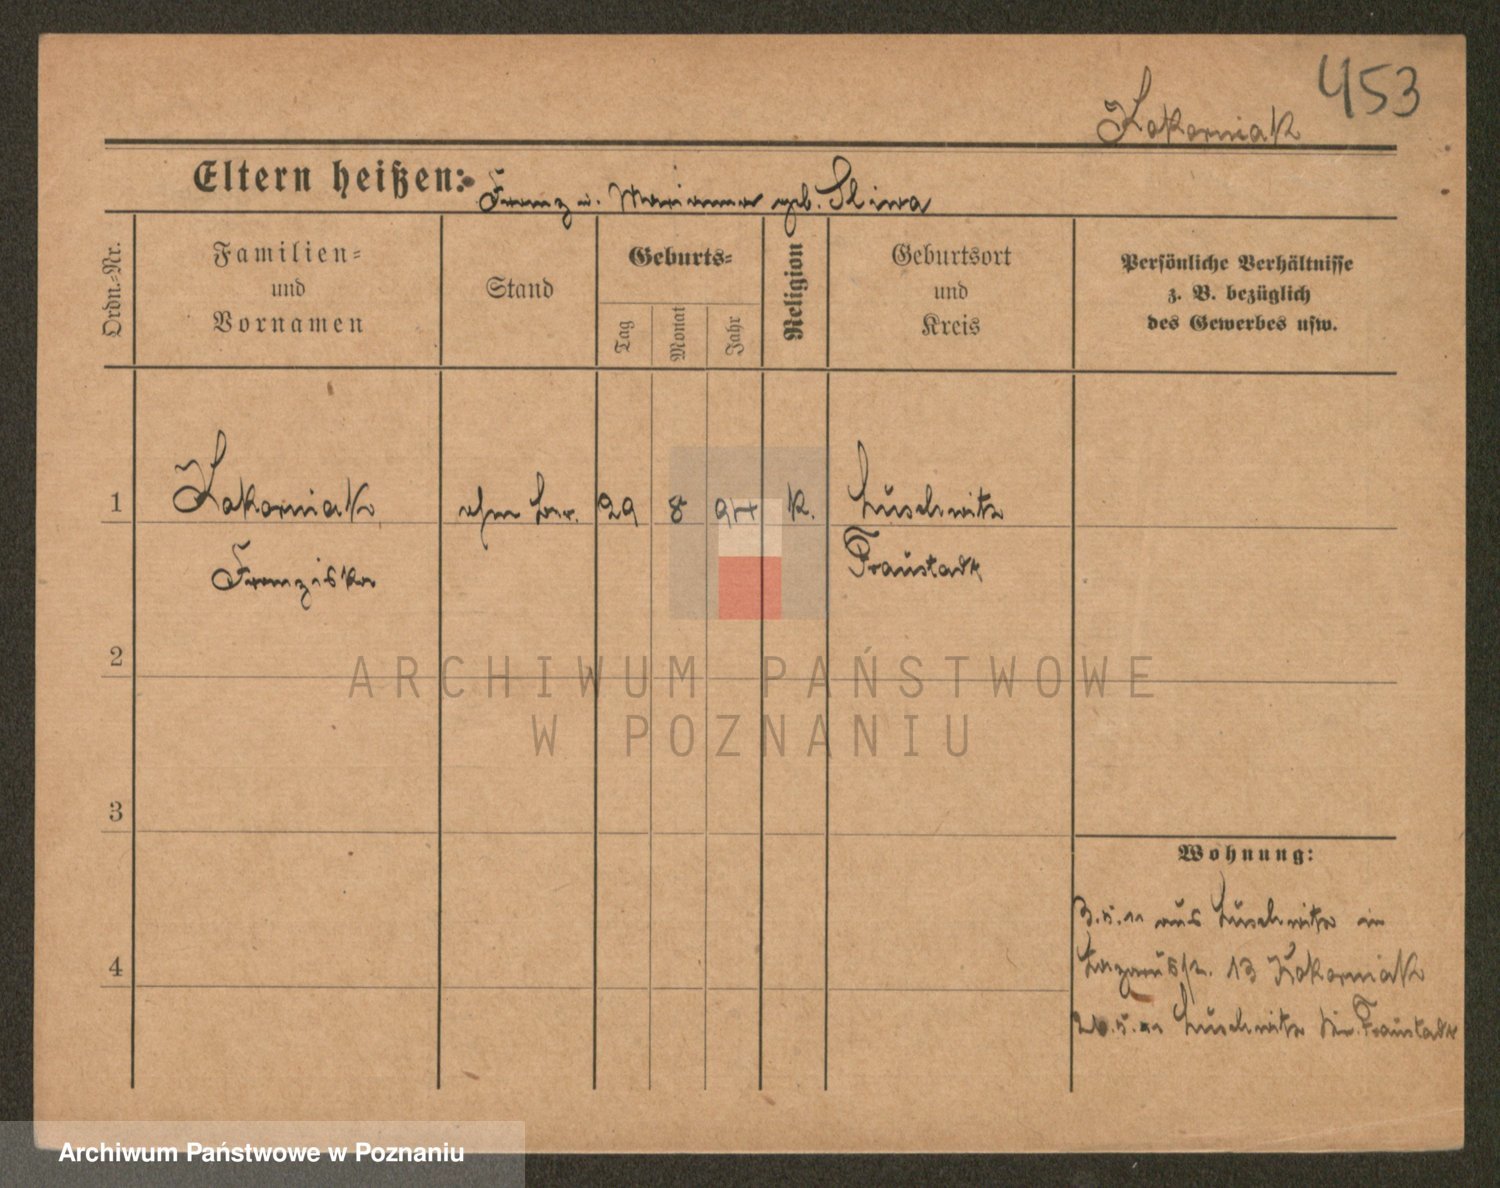 453
Kokorniak
Eltern heißen: Franz u. Marianna geb. Sliwa
Ordn.-Nr.
Familien-
und
Vornamen
Stand
Geburts-
Tag
Monat
Jahr
Religion
Geburtsort
und
Kreis
Persönliche Verhältnisse
z. B. bezüglich
des Gewerbes usw.
1
Kokorniak
ohne
29
8
97
K.
Luschwitz
Franziska
Fraustadt
2
3
4
Wohnung:
3.5.11 aus Luschwitz in
Lazarusstr. 13 Kokorniak
Luschwitz Kr. Fraustadt
ARCHIWUM PAŃSTWOWE
W POZNANIU
Archiwum Państwowe w Poznaniu